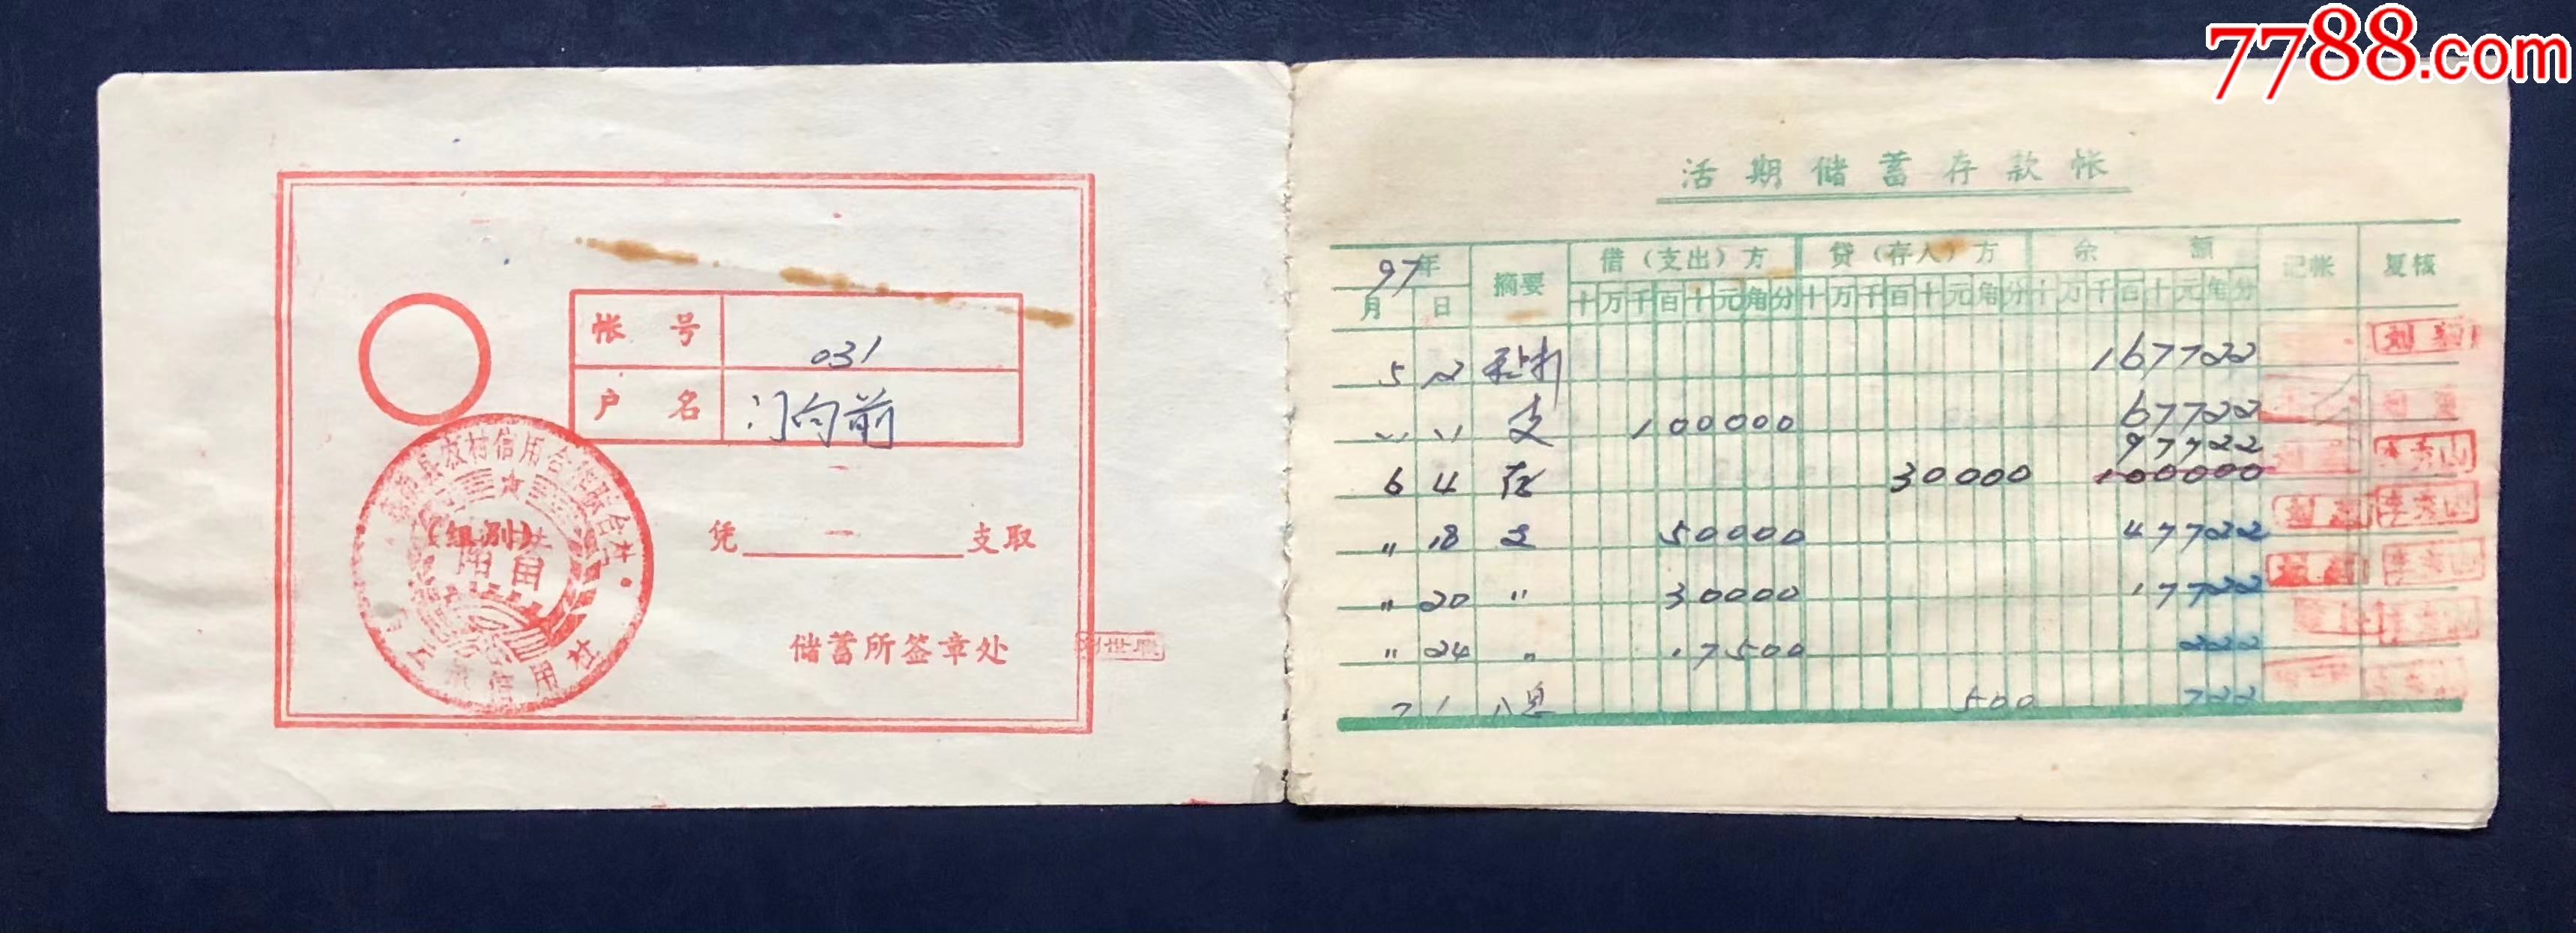 7788.com
帐 号 031
户 名 门向前
县农村信用合作联合社
(组别)
凭 一 支取
信用社
储蓄所签章处
活期储蓄存款帐
97年 摘要 借(支出)方 贷(存入)方 余 额 记帐 复核
月 日 十万千百十元角分 十万千百十元角分 十万千百十元角分
5 12 167722
〃 〃 支 100000 67722
97722
6 4 存 30000 100000
李秀山
〃 18 支 50000 47722
李秀山
〃 20 〃 30000 17722
李秀山
〃 24 〃 17500 222
7 1 息 500 722